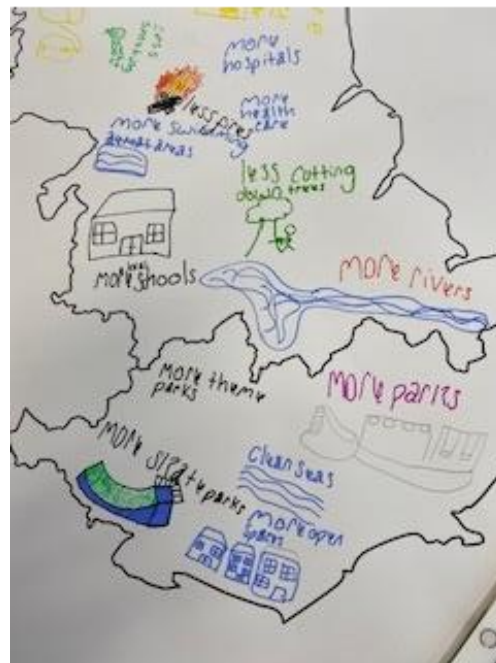 more
hospitals
less fires
more
health
care
more swimming
areas
less cutting
down trees
more local shools
more rivers
more theme
parks
more parks
more skate parks
clean seas
more open